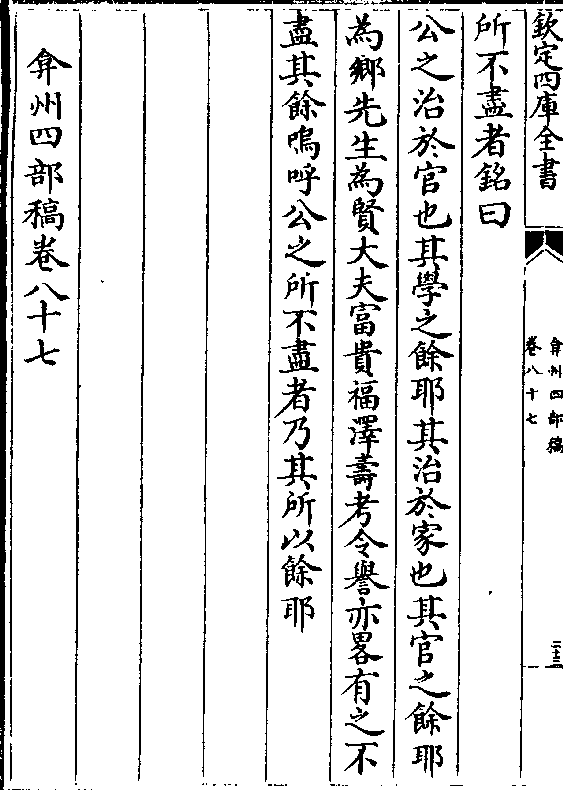 欽定四庫全書
弇州四部稿
卷八十七
二十三
所不盡者銘曰
公之治於官也其學之餘耶其治於家也其官之餘耶
為鄉先生為賢大夫富貴福澤壽考令譽亦畧有之不
盡其餘嗚呼公之所不盡者乃其所以餘耶
弇州四部稿卷八十七